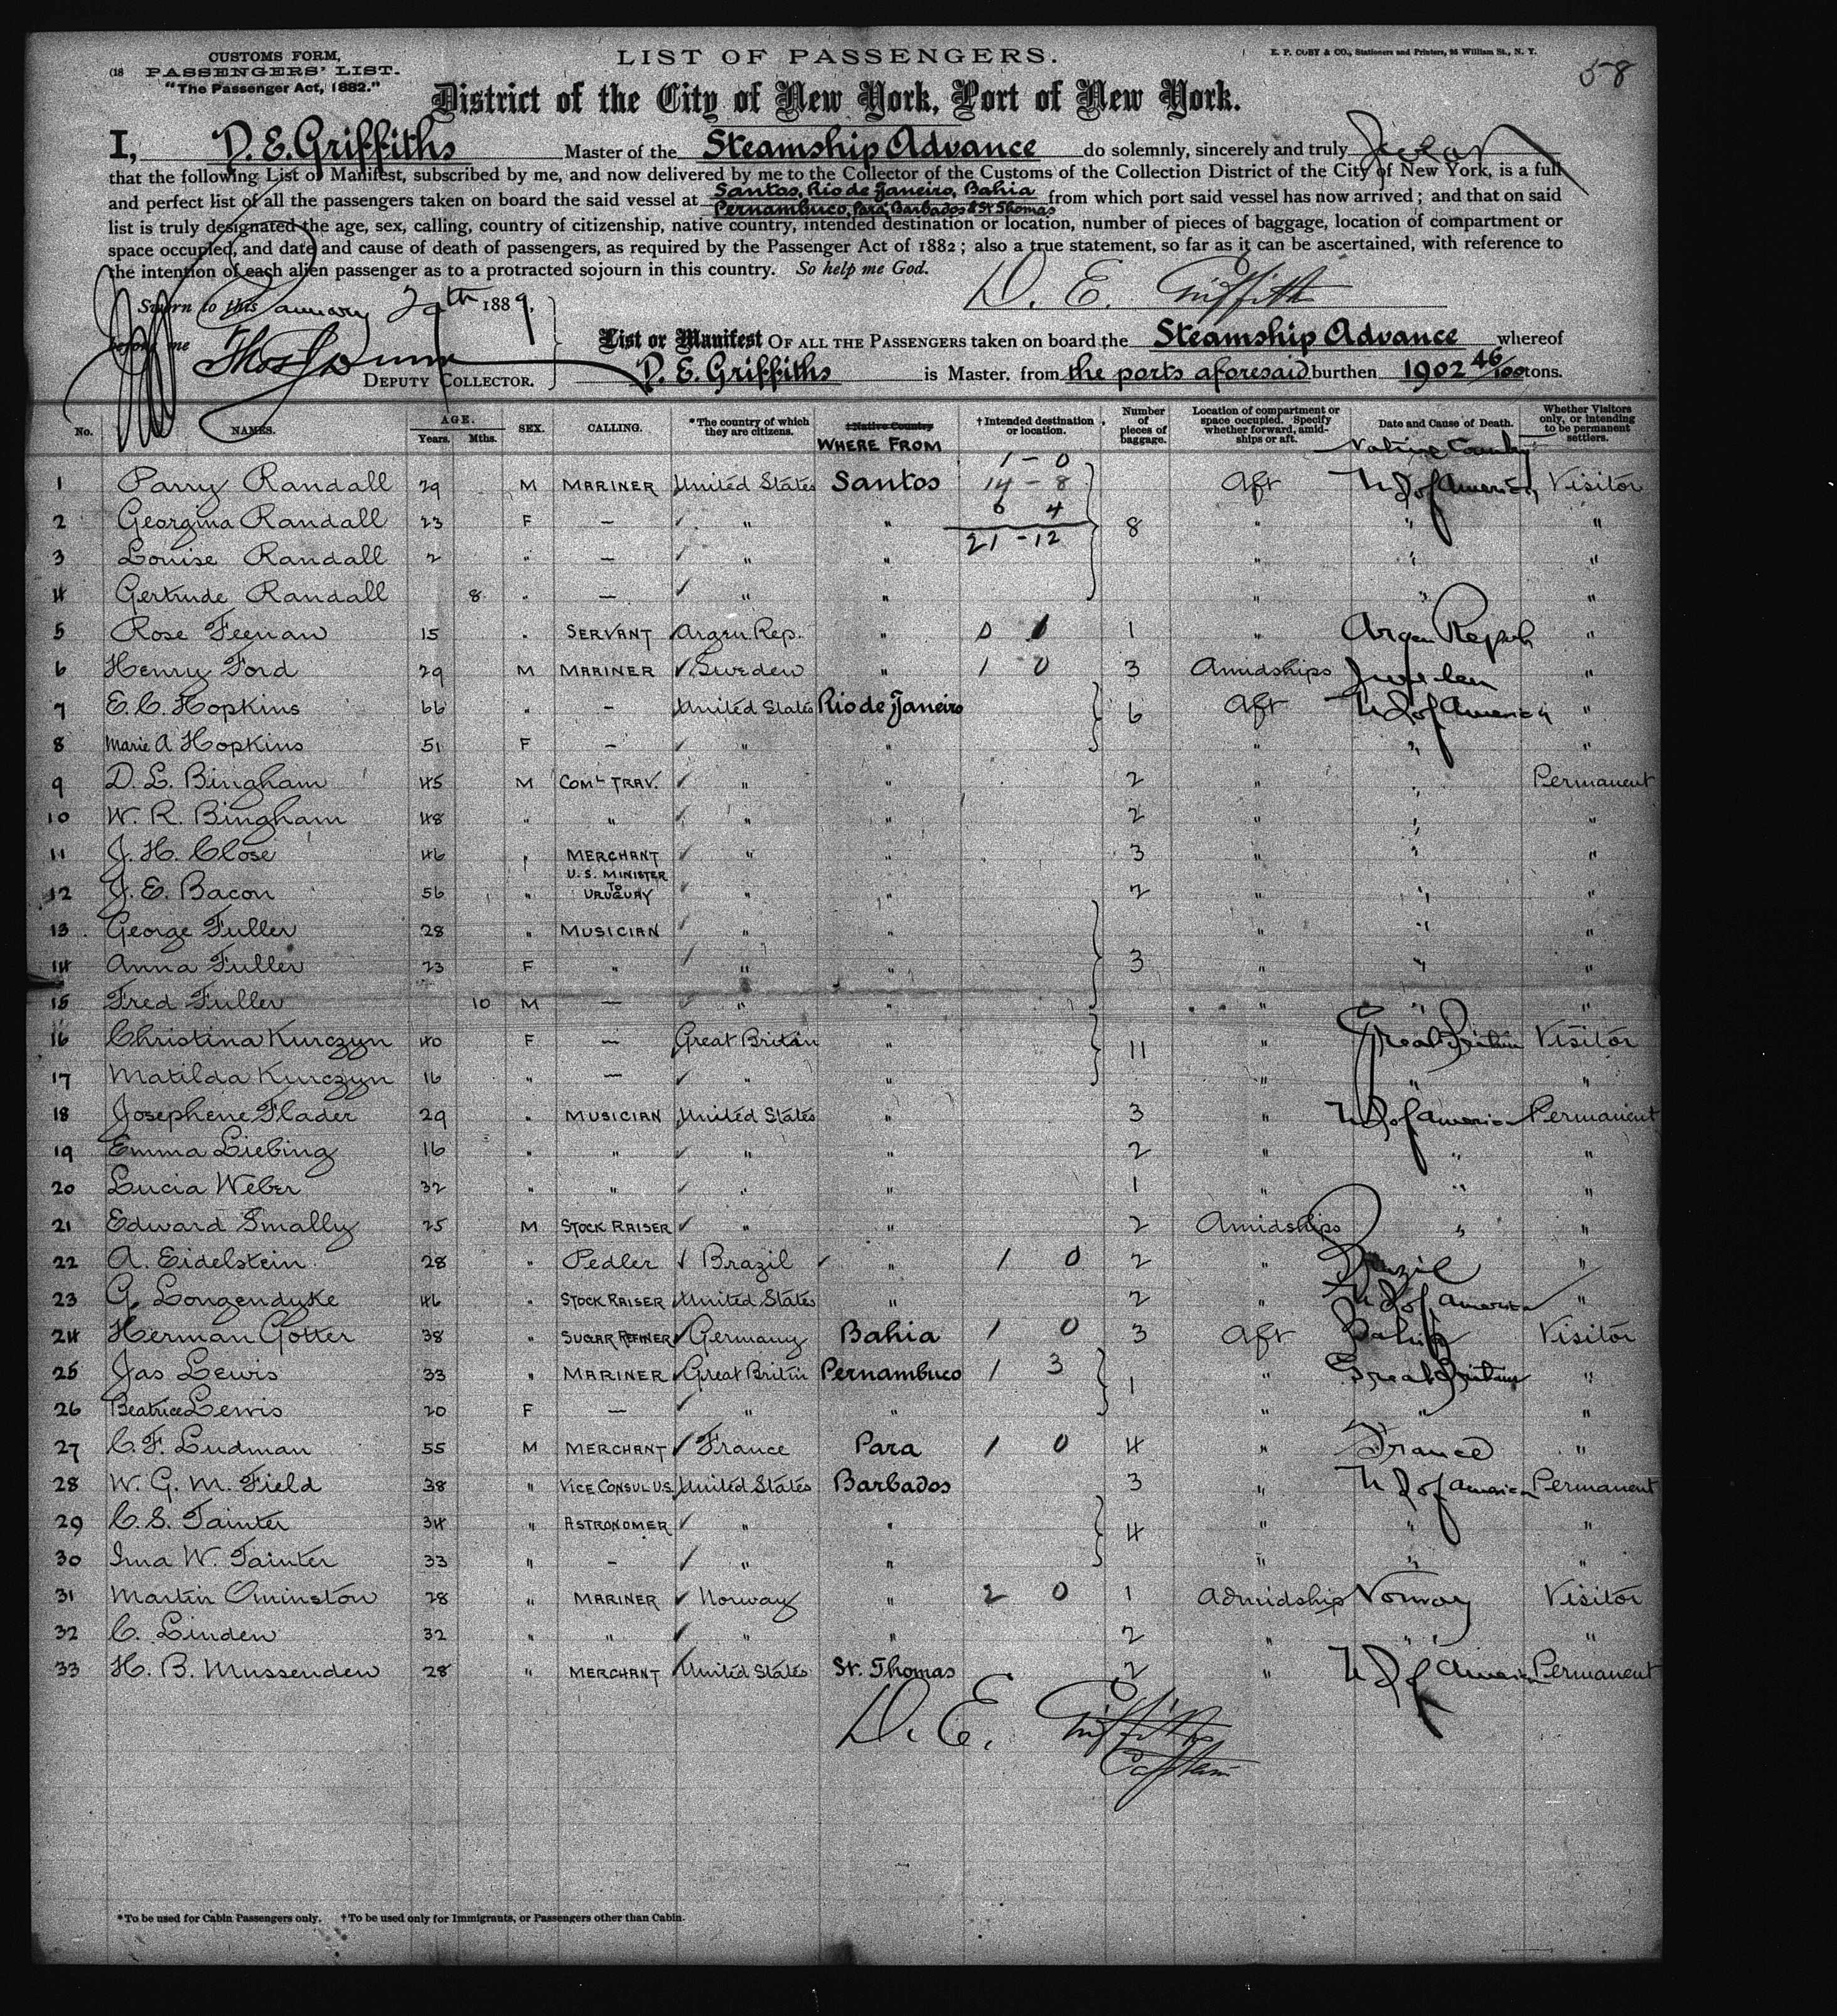 58
CUSTOMS FORM,
PASSENGERS' LIST.
"The Passenger Act, 1882."
LIST OF PASSENGERS.
E. P. COBY & CO., Stationers and Printers, William St., N. Y.
District of the City of New York, Port of New York.
I, D. E. Griffiths Master of the Steamship Advance do solemnly, sincerely and truly
that the following List or Manifest, subscribed by me, and now delivered by me to the Collector of the Customs of the Collection District of the City of New York, is a full
and perfect list of all the passengers taken on board the said vessel at Santos, Rio de Janeiro, Bahia Pernambuco, Para, Barbados & St Thomas from which port said vessel has now arrived; and that on said
list is truly designated the age, sex, calling, country of citizenship, native country, intended destination or location, number of pieces of baggage, location of compartment or
space occupied, and date and cause of death of passengers, as required by the Passenger Act of 1882; also a true statement, so far as it can be ascertained, with reference to
the intention of each alien passenger as to a protracted sojourn in this country. So help me God.
D. E. Griffith
Sworn to this January 29th 1889,
before me
DEPUTY COLLECTOR.
List or Manifest OF ALL THE PASSENGERS taken on board the Steamship Advance whereof
D. E. Griffiths is Master. from the ports aforesaid burthen 1902 46/100 tons.
No. NAMES. AGE. Years. Mths. SEX. CALLING. *The country of which they are citizens. †Native Country WHERE FROM †Intended destination or location. Number of pieces of baggage. Location of compartment or space occupied. Specify whether forward, amidships or aft. Date and Cause of Death. Native Country Whether Visitors only, or intending to be permanent settlers.
1 - 0
1 Parry Randall 29 M MARINER United States Santos 14 - 8 Aft U S of America Visitor
2 Georgina Randall 23 F — " " 6 4 8 " " "
21 - 12
3 Louise Randall 2 " — " " " " "
4 Gertrude Randall 8 " — " " " " "
5 Rose Feenan 15 " SERVANT Argen Rep. " 0 1 1 " Argen Repub "
6 Henry Ford 29 M MARINER Sweden " 1 0 3 Amidships Sweden "
7 E. C. Hopkins 66 " — United States Rio de Janeiro 6 Aft U S of America "
8 Marie A Hopkins 51 F — " " " " "
9 D. L. Bingham 45 M COML TRAV. " " 2 " " Permanent
10 W. R. Bingham 48 " " " " 2 " " "
11 J. H. Close 46 " MERCHANT " " 3 " " "
12 J. E. Bacon 56 " U.S. MINISTER TO URUGUAY " " 2 " " "
13 George Fuller 28 " MUSICIAN " " " " "
14 Anna Fuller 23 F " " " 3 " " "
15 Fred Fuller 10 M — " " " " "
16 Christina Kurczyn 40 F — Great Britain " 11 " Great Britain Visitor
17 Matilda Kurczyn 16 " — " " " " "
18 Josephene Flader 29 " MUSICIAN United States " 3 " U S of America Permanent
19 Emma Liebing 16 " " " " 2 " " "
20 Lucia Weber 32 " " " " 1 " " "
21 Edward Smally 25 M STOCK RAISER " " 2 Amidships " "
22 A. Eidelstein 28 " Pedler Brazil " 1 0 2 " Brazil "
23 G. Longendyke 46 " STOCK RAISER United States " 2 " U S of America "
24 Herman Gotter 38 " SUGAR REFINER Germany Bahia 1 0 3 Aft Bahia Visitor
25 Jas Lewis 33 " MARINER Great Britin Pernambuco 1 3 1 " Great Britain "
26 Beatrice Lewis 20 F — " " " " "
27 C. F. Ludman 55 M MERCHANT France Para 1 0 4 " France "
28 W. G. M. Field 38 " VICE CONSUL U.S. United States Barbados 3 " U S of America Permanent
29 C. S. Tainter 34 " ASTRONOMER " " 4 " " "
30 Ima W. Tainter 33 " — " " " " "
31 Martin Ominston 28 " MARINER Norway " 2 0 1 Admidship Norway Visitor
32 C. Linden 32 " " " " 2 " " "
33 H. B. Mussenden 28 " MERCHANT United States St. Thomas 2 " U S of America Permanent
D. E. Griffiths
Captain
*To be used for Cabin Passengers only. †To be used only for Immigrants, or Passengers other than Cabin.